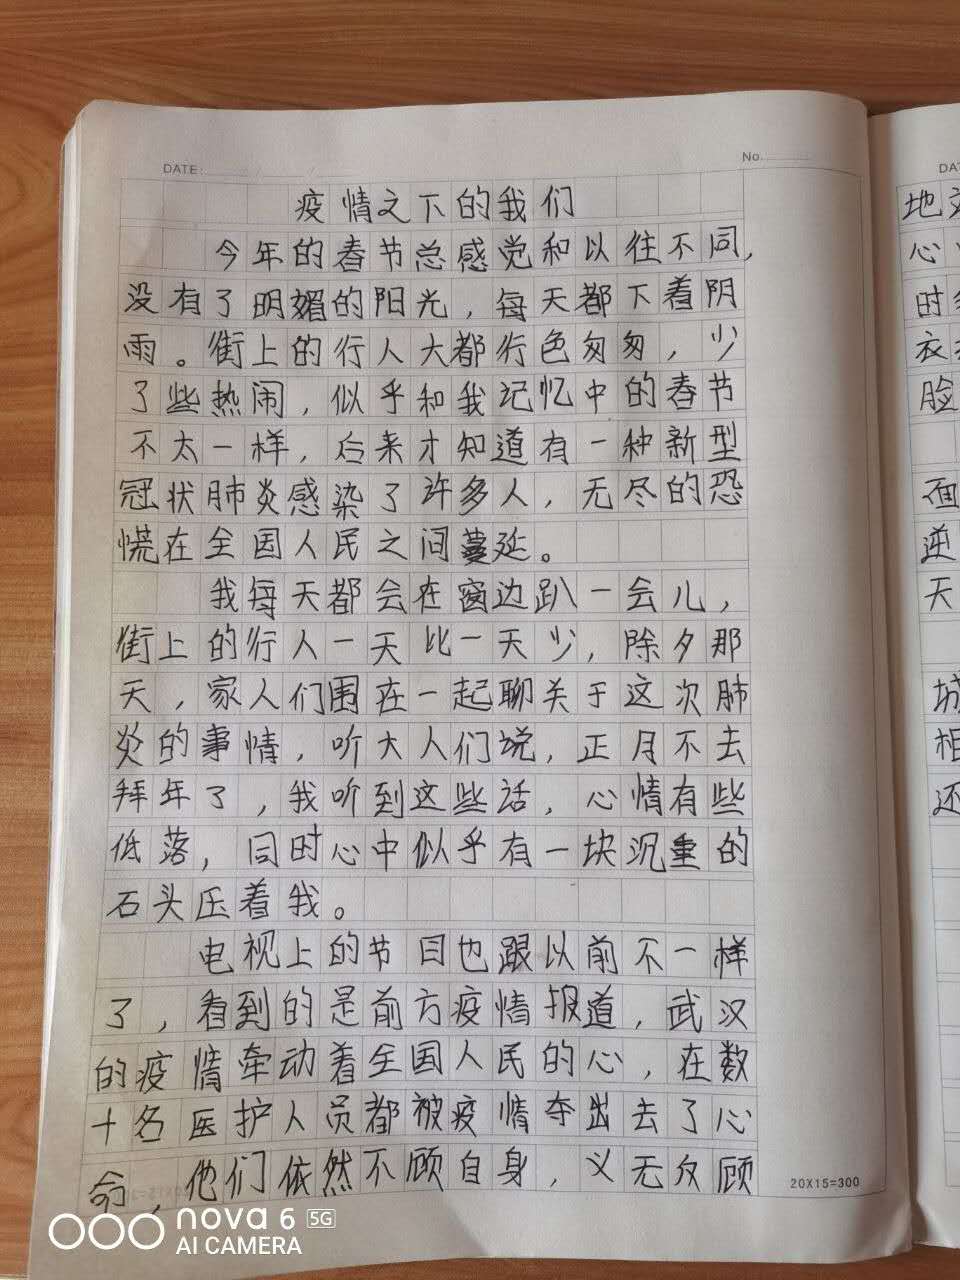 DATE:
No.
疫情之下的我们
今年的春节总感觉和以往不同,
没有了明媚的阳光,每天都下着阴
雨。街上的行人大都行色匆匆,少
了些热闹,似乎和我记忆中的春节
不太一样,后来才知道有一种新型
冠状肺炎感染了许多人,无尽的恐
慌在全国人民之间蔓延。
我每天都会在窗边趴一会儿,
街上的行人一天比一天少,除夕那
天,家人们围在一起聊关于这次肺
炎的事情,听大人们说,正月不去
拜年了,我听到这些话,心情有些
低落,同时心中似乎有一块沉重的
石头压着我。
电视上的节目也跟以前不一样
了,看到的是前方疫情报道,武汉
的疫情牵动着全国人民的心,在数
十名医护人员都被疫情夺出去了心
命,他们依然不顾自身,义无反顾
20X15=300
地
心
时
衣
脸
面
逆
天
城
相
还
nova 6 5G
AI CAMERA